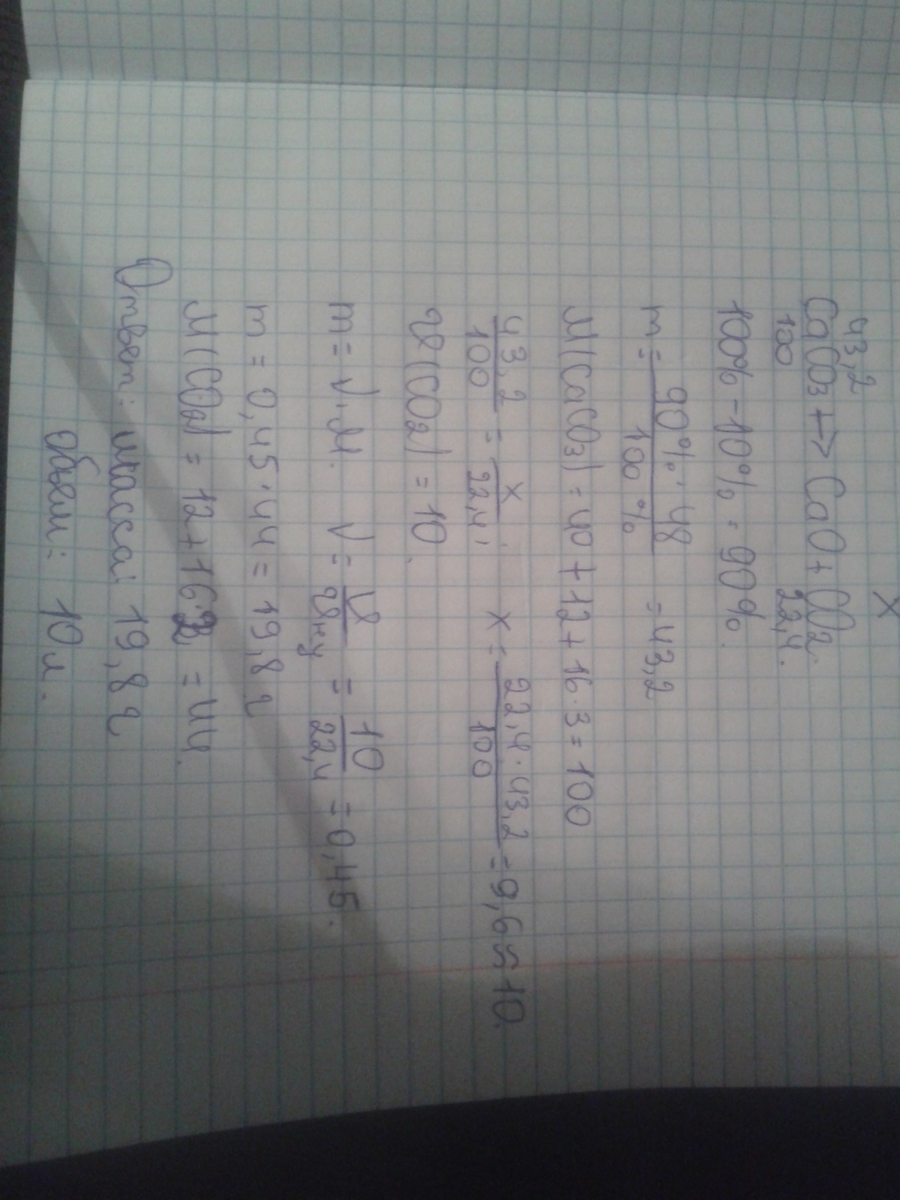 x
43,2
CaCo3 → CaO + CO2.
100 22,4.
100% - 10% = 90%.
m = 90% · 48 / 100% = 43,2
M(CaCO3) = 40 + 12 + 16 · 3 = 100
43,2 / 100 = x / 22,4; x = 22,4 · 43,2 / 100 = 9,6 ≈ 10.
V(CO2) = 10.
m = V · M. V = V / Vну = 10 / 22,4 = 0,45.
m = 0,45 · 44 = 19,8 г
M(CO2) = 12 + 16 · 2 = 44.
Ответ: масса: 19,8 г
объем: 10 л.